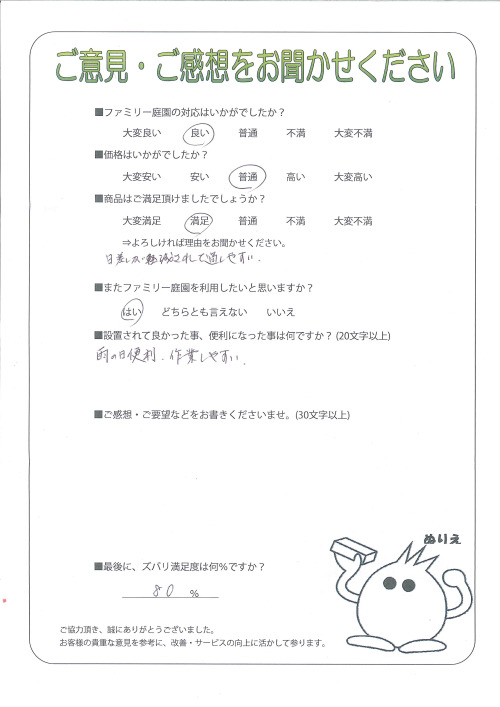 ご意見・ご感想をお聞かせください
■ファミリー庭園の対応はいかがでしたか？
大変良い 良い 普通 不満 大変不満
■価格はいかがでしたか？
大変安い 安い 普通 高い 大変高い
■商品はご満足頂けましたでしょうか？
大変満足 満足 普通 不満 大変不満
⇒よろしければ理由をお聞かせください。
日差しが されて過しやすい.
■またファミリー庭園を利用したいと思いますか？
はい どちらとも言えない いいえ
■設置されて良かった事、便利になった事は何ですか？(20文字以上)
雨の日便利. 作業しやすい.
■ご感想・ご要望などをお書きくださいませ。(30文字以上)
ぬりえ
■最後に、ズバリ満足度は何％ですか？
80 %
ご協力頂き、誠にありがとうございました。
お客様の貴重な意見を参考に、改善・サービスの向上に活かして参ります。